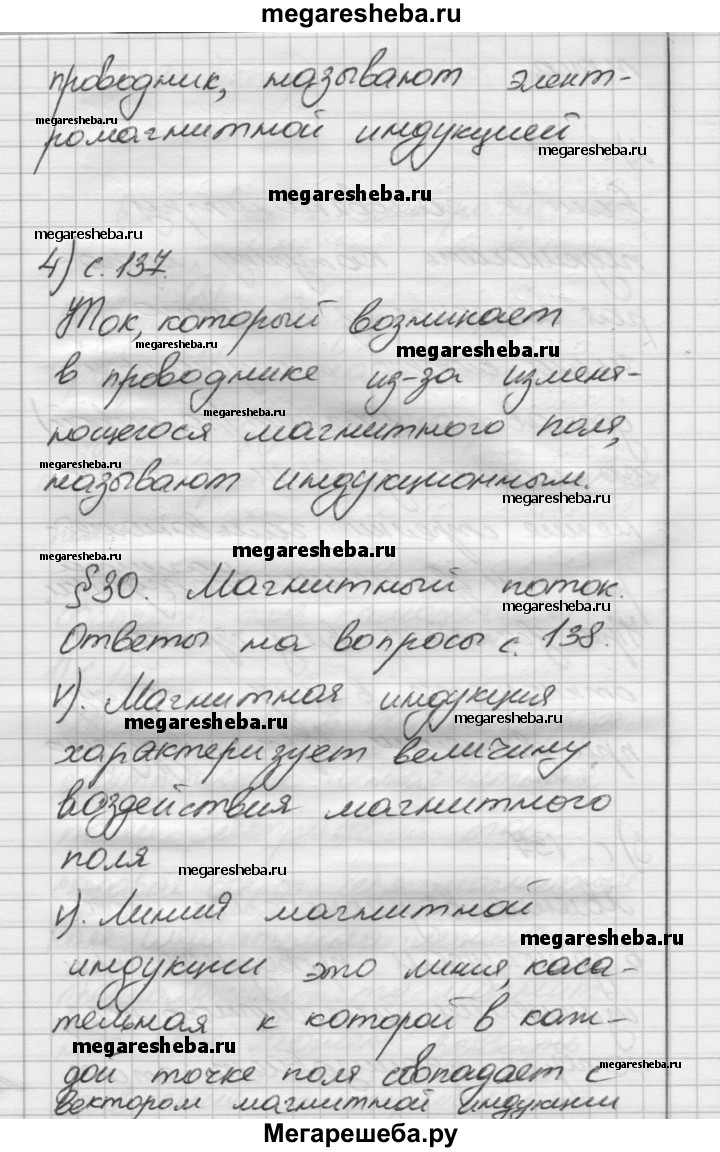 megaresheba.ru
проводник, называют элект-
megaresheba.ru
ромагнитной индукцией
megaresheba.ru
megaresheba.ru
megaresheba.ru
4) с. 137.
Ток, который возникает
megaresheba.ru
megaresheba.ru
в проводнике из-за изменя-
megaresheba.ru
ющегося магнитного поля,
megaresheba.ru
называют индукционным.
megaresheba.ru
megaresheba.ru
megaresheba.ru
§30. Магнитный поток.
megaresheba.ru
Ответы на вопросы с. 138.
V). Магнитная индукция
megaresheba.ru
megaresheba.ru
характеризует величину
воздействия магнитного
поля
megaresheba.ru
V). Линия магнитной
megaresheba.ru
индукции это линия, каса-
тельная к которой в каж-
megaresheba.ru
дой точке поля совпадает с
megaresheba.ru
вектором магнитной индукции
Мегарешеба.ру